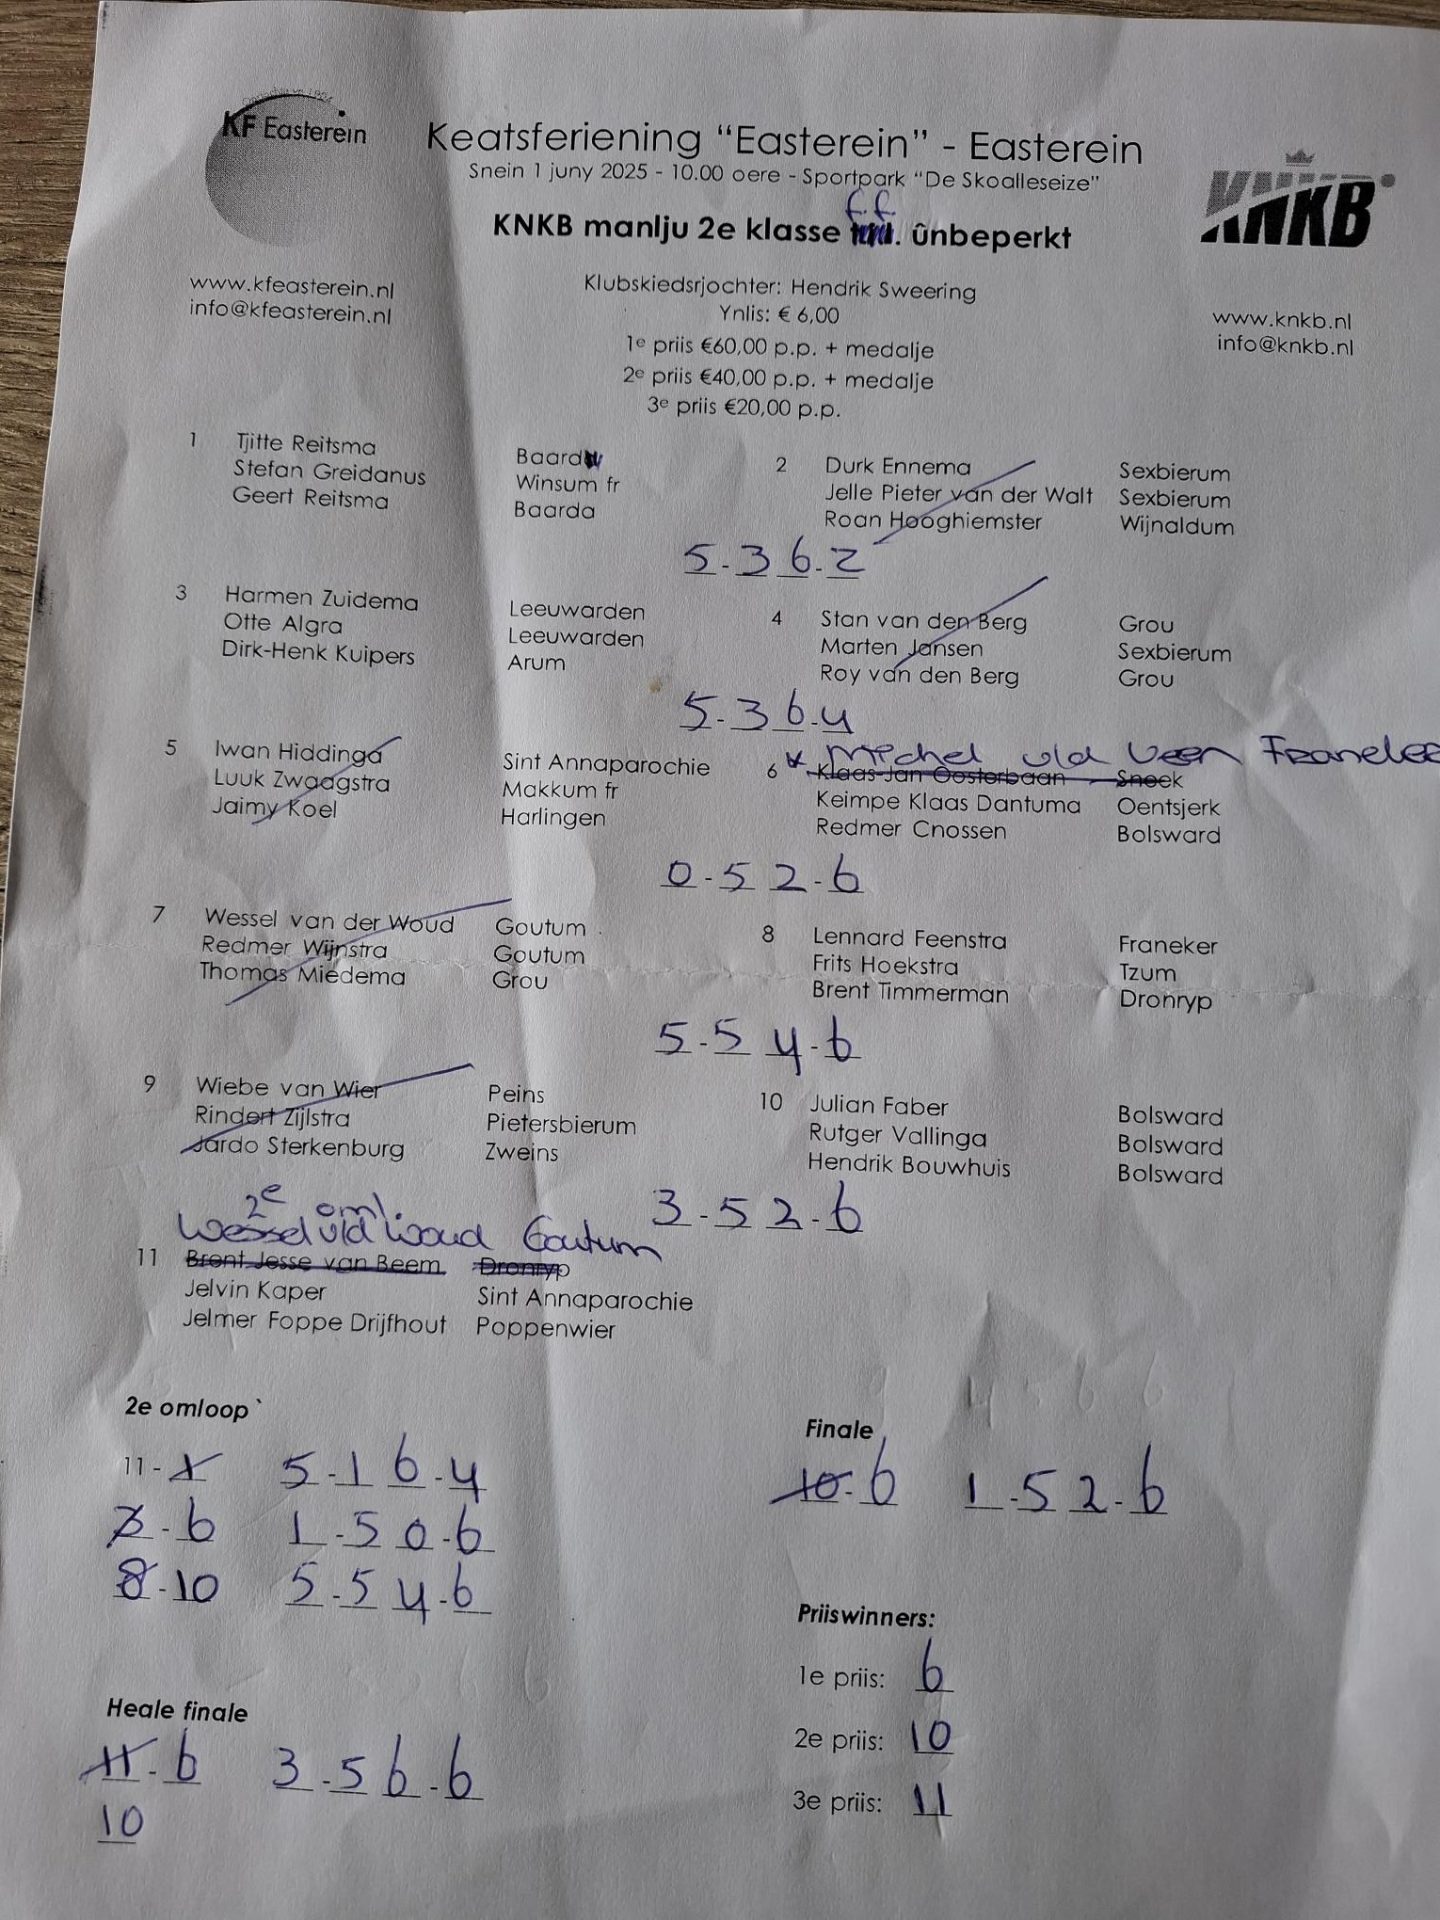 KF Easterein
Keatsferiening “Easterein” - Easterein
Snein 1 juny 2025 - 10.00 oere - Sportpark “De Skoalleseize”
KNKB
f.f
KNKB manlju 2e klasse . ûnbeperkt
www.kfeasterein.nl
info@kfeasterein.nl
Klubskiedsrjochter: Hendrik Sweering
Ynlis: € 6,00
1e priis €60,00 p.p. + medalje
2e priis €40,00 p.p. + medalje
3e priis €20,00 p.p.
www.knkb.nl
info@knkb.nl
1 Tjitte Reitsma Baard
Stefan Greidanus Winsum fr
Geert Reitsma Baarda
2 Durk Ennema Sexbierum
Jelle Pieter van der Walt Sexbierum
Roan Hooghiemster Wijnaldum
5-3 6-2
3 Harmen Zuidema Leeuwarden
Otte Algra Leeuwarden
Dirk-Henk Kuipers Arum
4 Stan van den Berg Grou
Marten Jansen Sexbierum
Roy van den Berg Grou
5-3 6-4
5 Iwan Hiddinga Sint Annaparochie
Luuk Zwaagstra Makkum fr
Jaimy Koel Harlingen
Michel vld Veen Franeke
6 Klaas-Jan Oosterbaan Sneek
Keimpe Klaas Dantuma Oentsjerk
Redmer Cnossen Bolsward
0-5 2-6
7 Wessel van der Woud Goutum
Redmer Wijnstra Goutum
Thomas Miedema Grou
8 Lennard Feenstra Franeker
Frits Hoekstra Tzum
Brent Timmerman Dronryp
5-5 4-6
9 Wiebe van Wier Peins
Rindert Zijlstra Pietersbierum
Jardo Sterkenburg Zweins
10 Julian Faber Bolsward
Rutger Vallinga Bolsward
Hendrik Bouwhuis Bolsward
3-5 2-6
2e oml.
Wessel vld Woud Goutum
11 Brent Jesse van Beem Dronryp
Jelvin Kaper Sint Annaparochie
Jelmer Foppe Drijfhout Poppenwier
2e omloop
11 - 1 5-1 6-4
3-6 1-5 0-6
8-10 5-5 4-6
Heale finale
11-6 3-5 6-6
10
Finale
10-6 1-5 2-6
Priiswinners:
1e priis: 6
2e priis: 10
3e priis: 11